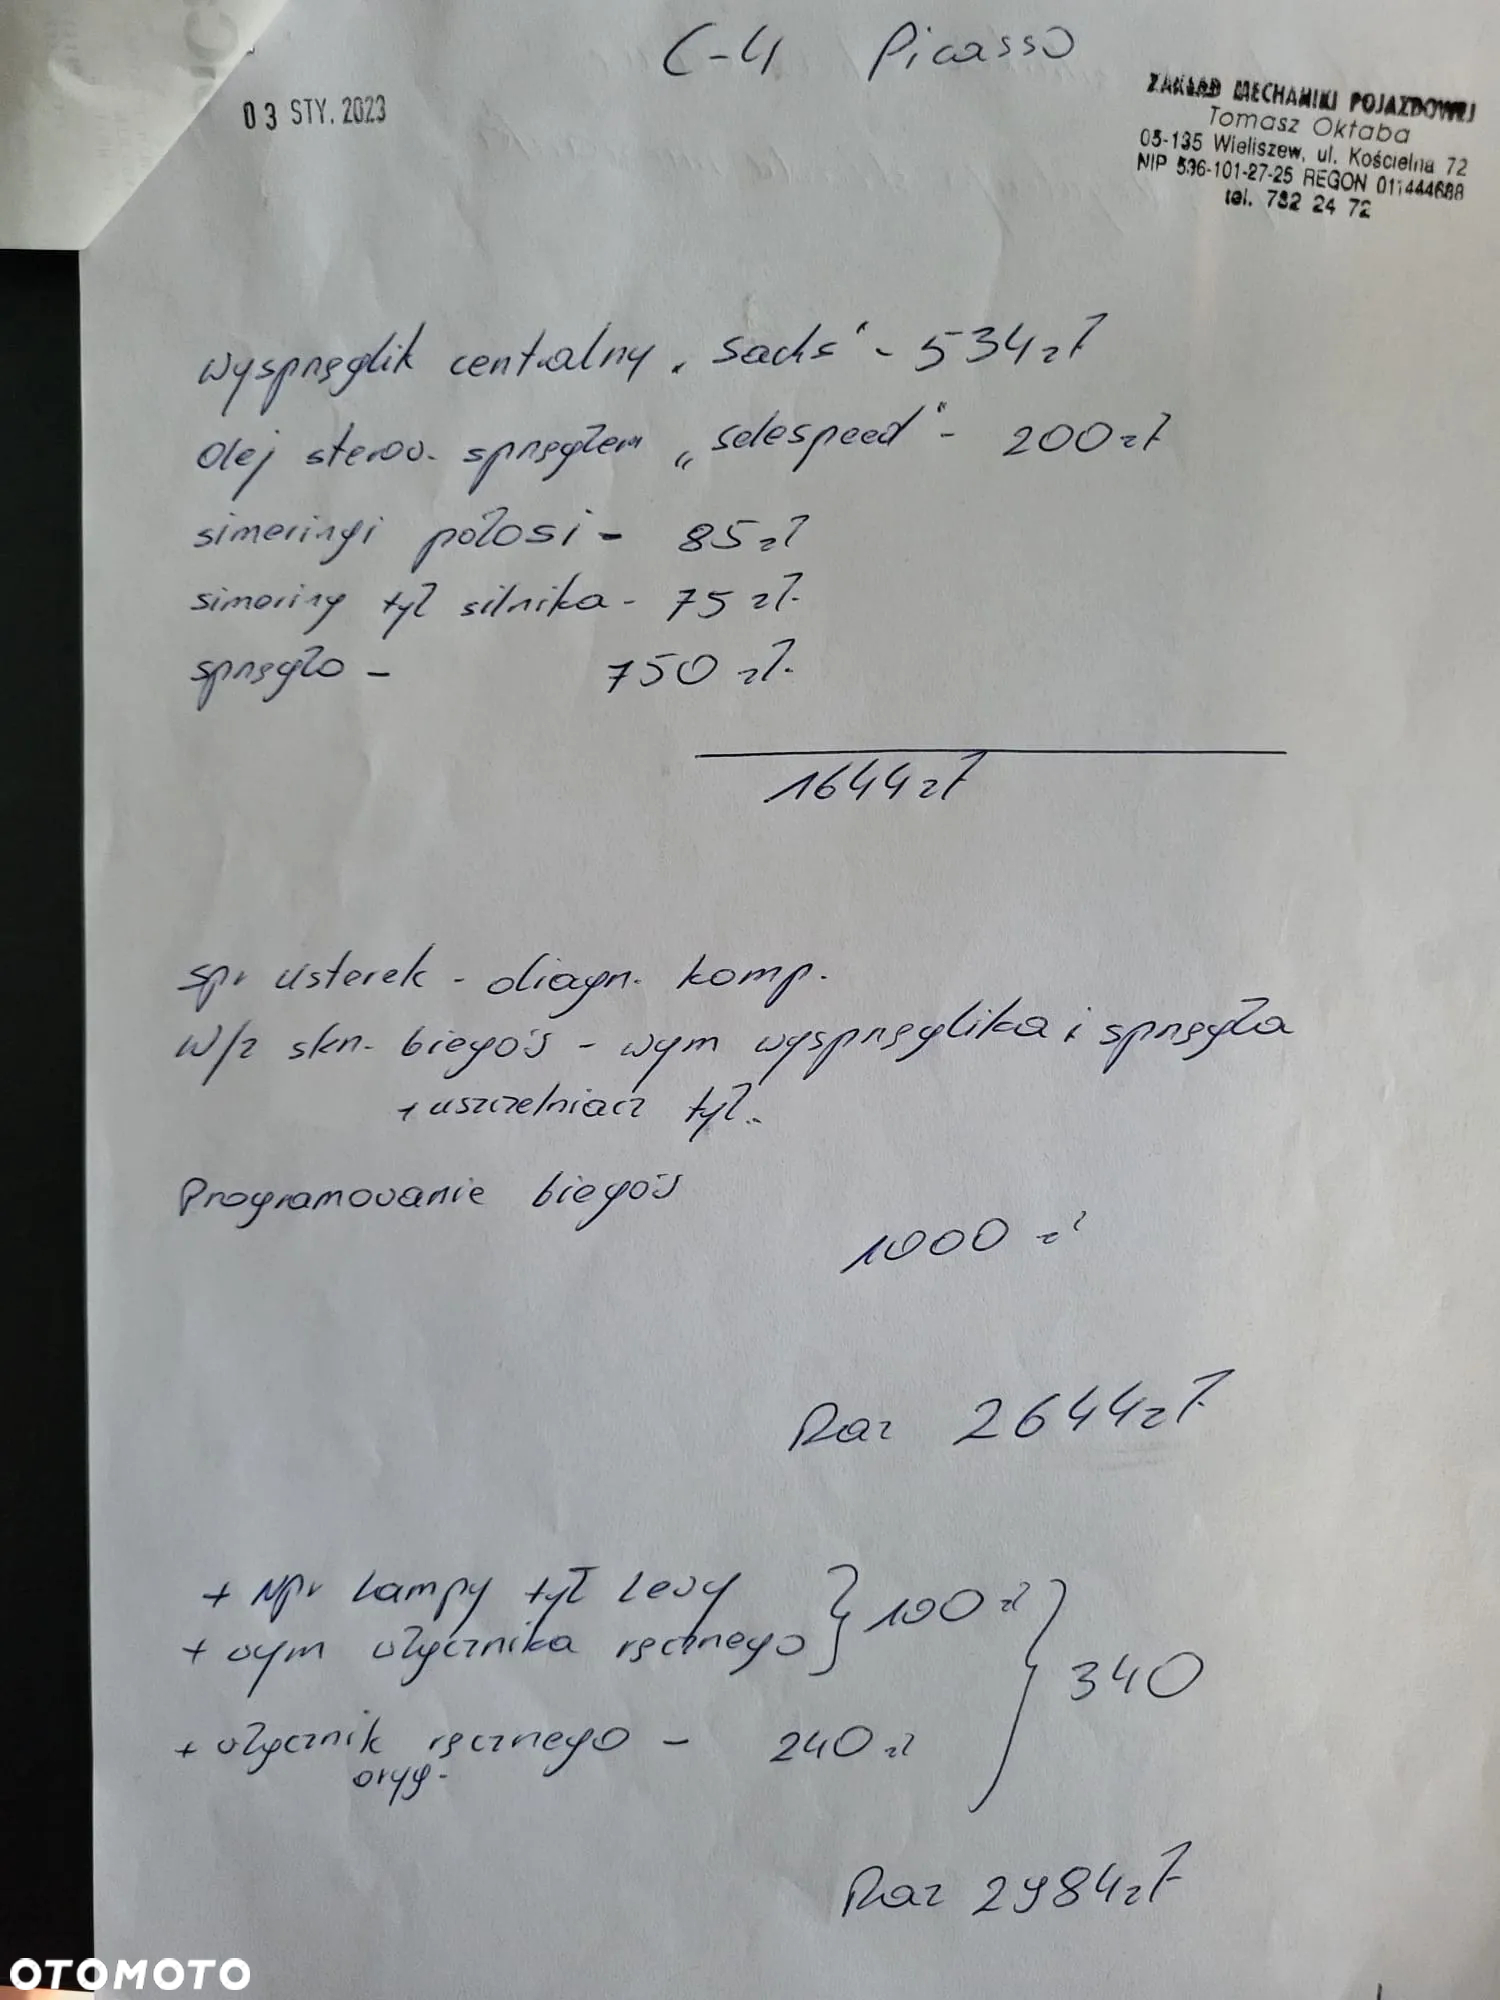 C-4 Picasso
03 STY. 2023
ZAKŁAD MECHANIKI POJAZDOWEJ
Tomasz Oktaba
05-135 Wieliszew, ul. Kościelna 72
NIP 536-101-27-25 REGON 011444688
tel. 782 24 72
wysprzęglik centralny „Sachs" - 534 zł
Olej sterow. sprzęgłem „selespeed" - 200 zł
simeringi półosi - 85 zł
simering tył silnika - 75 zł.
sprzęgło - 750 zł.
1644 zł
spr usterek - diagn. komp.
W/z skrz. biegów - wym wysprzęglika i sprzęgła
+ uszczelniacz tył.
Programowanie biegów
1000 zł
Raz 2644 zł
+ Npr Lampy tył Lewy } 100 zł } 340
+ wym włącznika ręcznego
+ włącznik ręcznego - 240 zł
oryg.
Raz 2984 zł
OTOMOTO